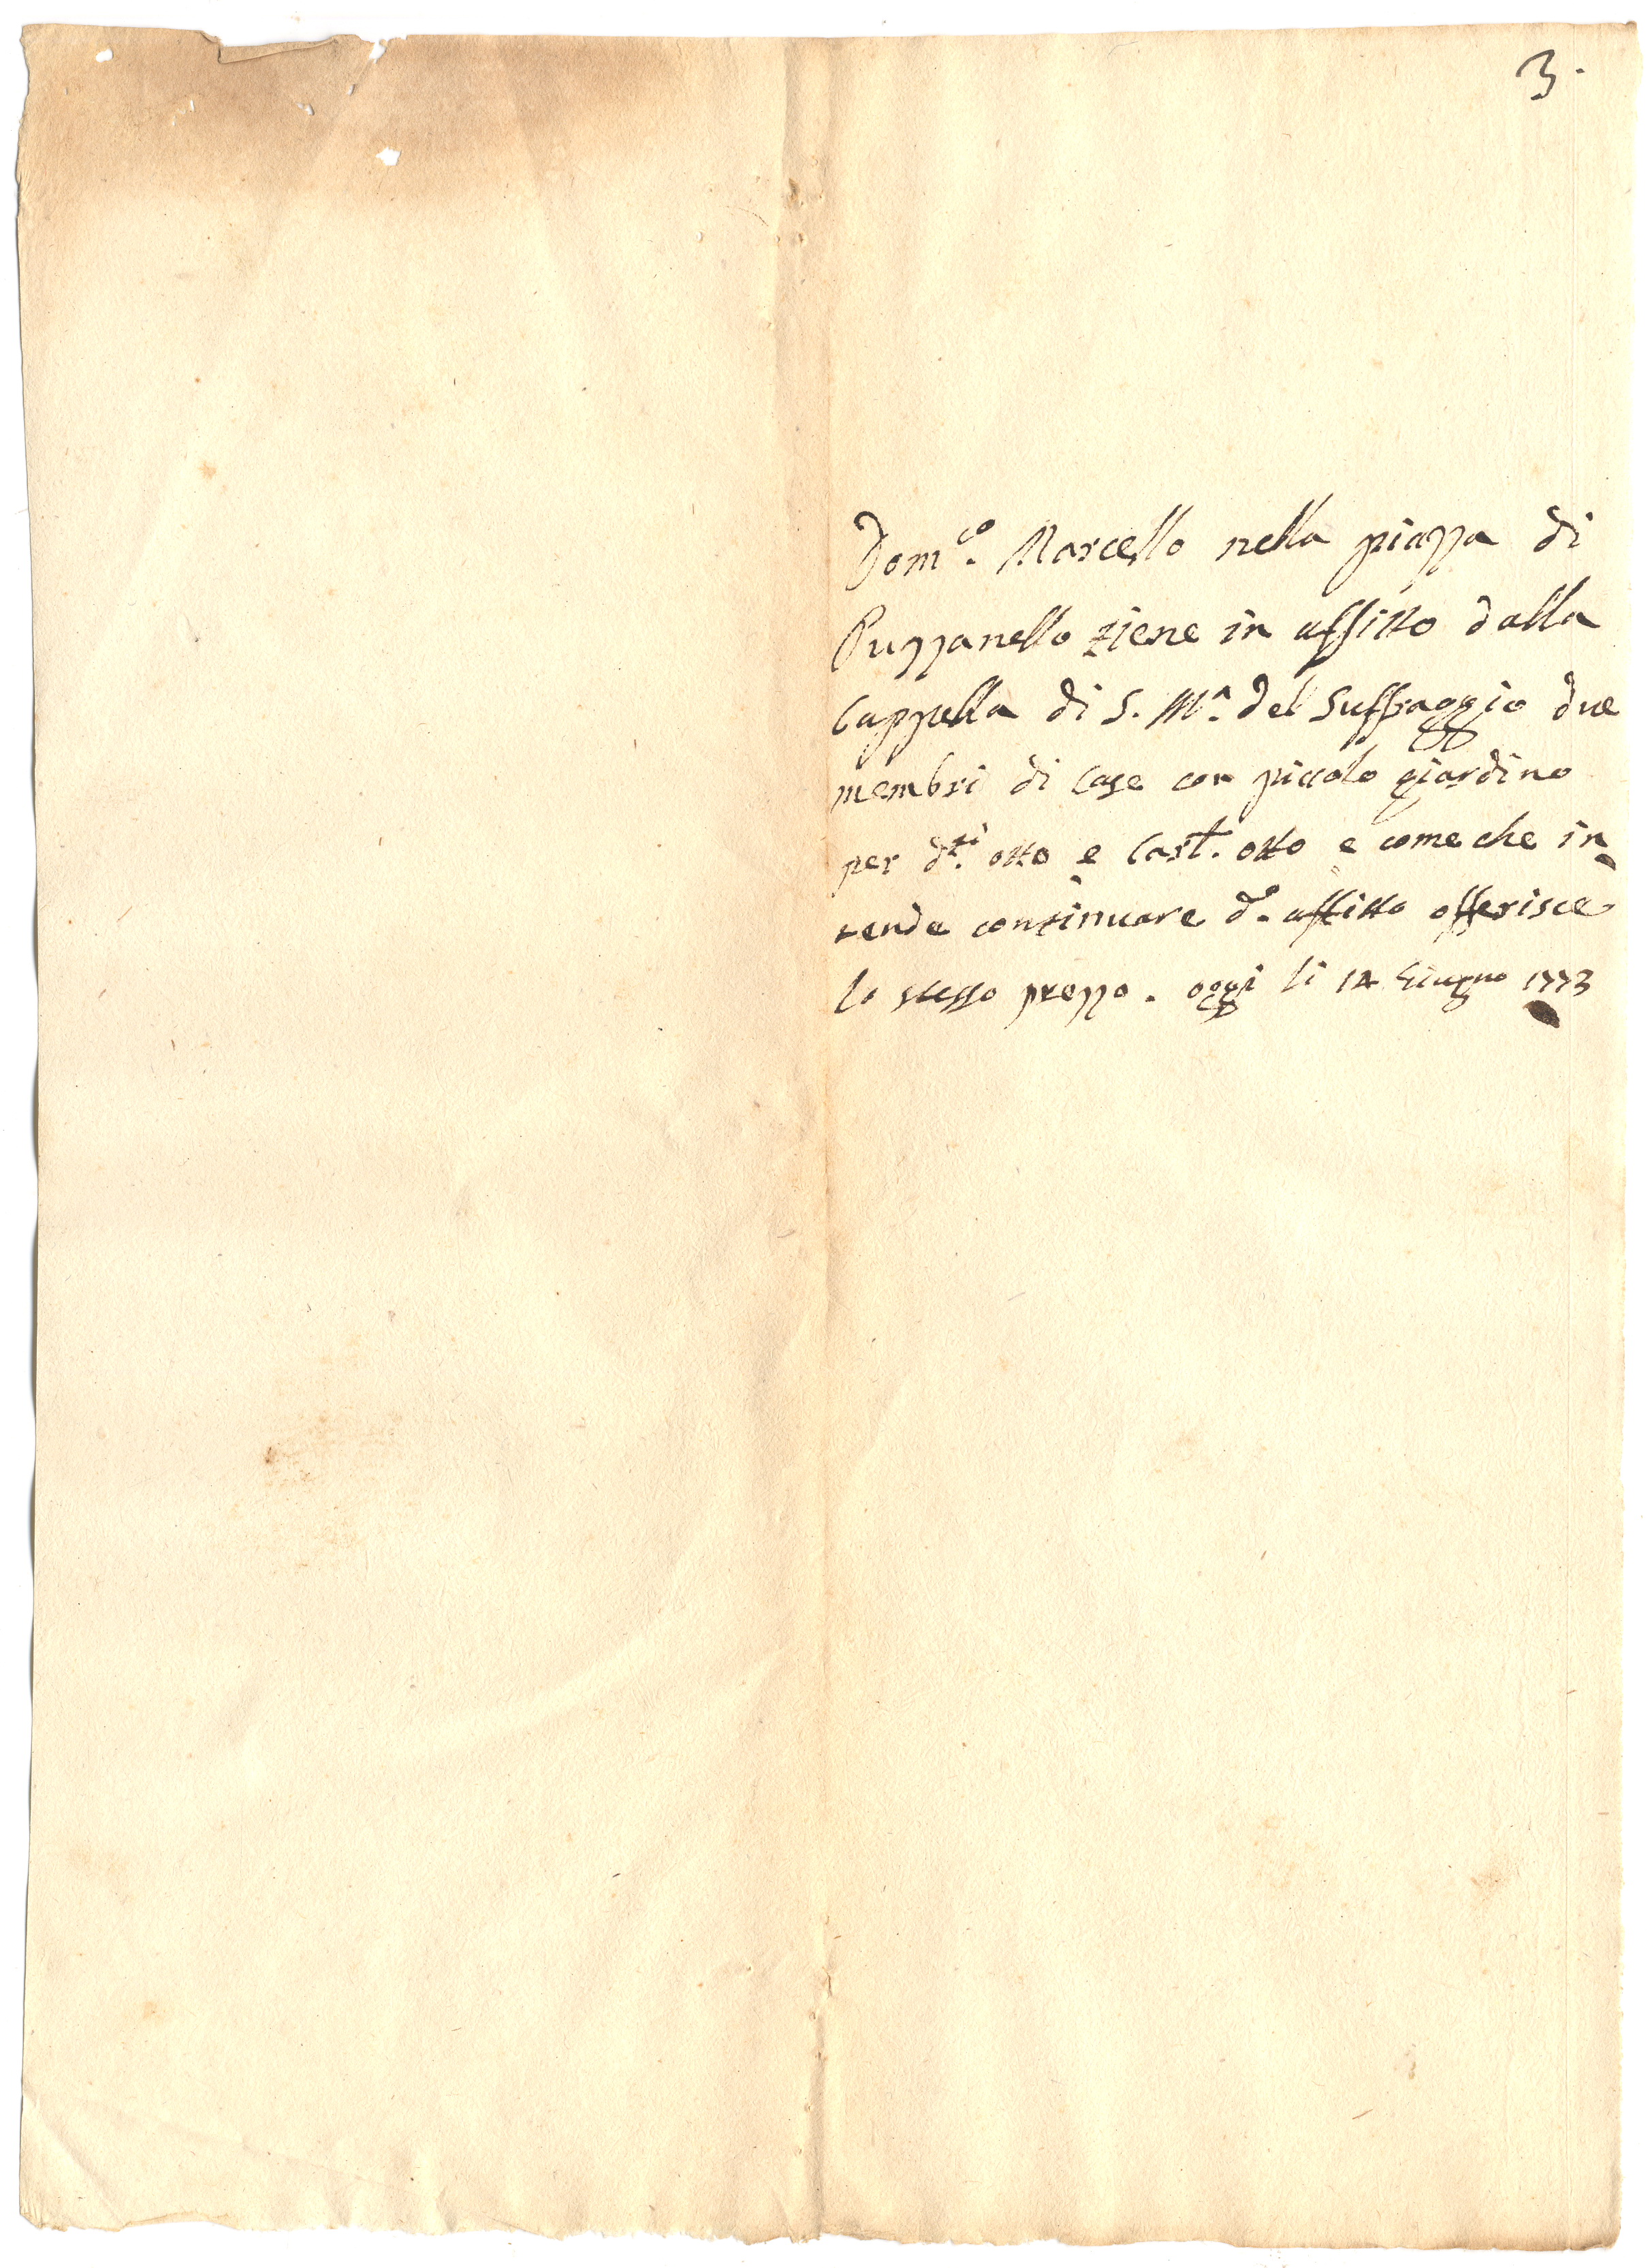 3.
Dom.co Marcello nella piazza di
Puzzanello tiene in affitto dalla
Cappella di S. M.a del Suffraggio due
membri di Case con piccolo giardino
per d.ti otto e Carl. otto e come che in
tende continuare d.o affitto offerisce
lo stesso prezzo. oggi li 14 Giugno 1773